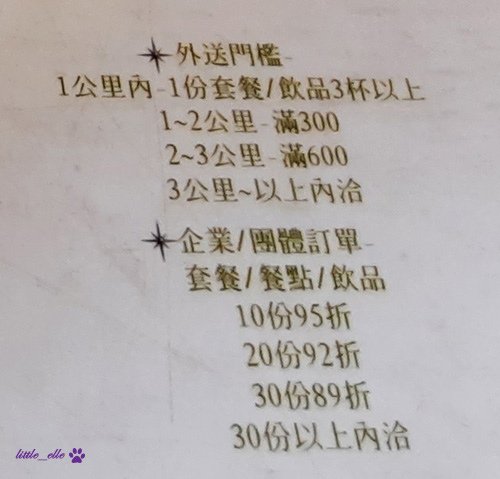 外送門檻-
1公里內-1份套餐/飲品3杯以上
1~2公里-滿300
2~3公里-滿600
3公里~以上內洽
企業/團體訂單-
套餐/餐點/飲品
10份95折
20份92折
30份89折
30份以上內洽
little_elle